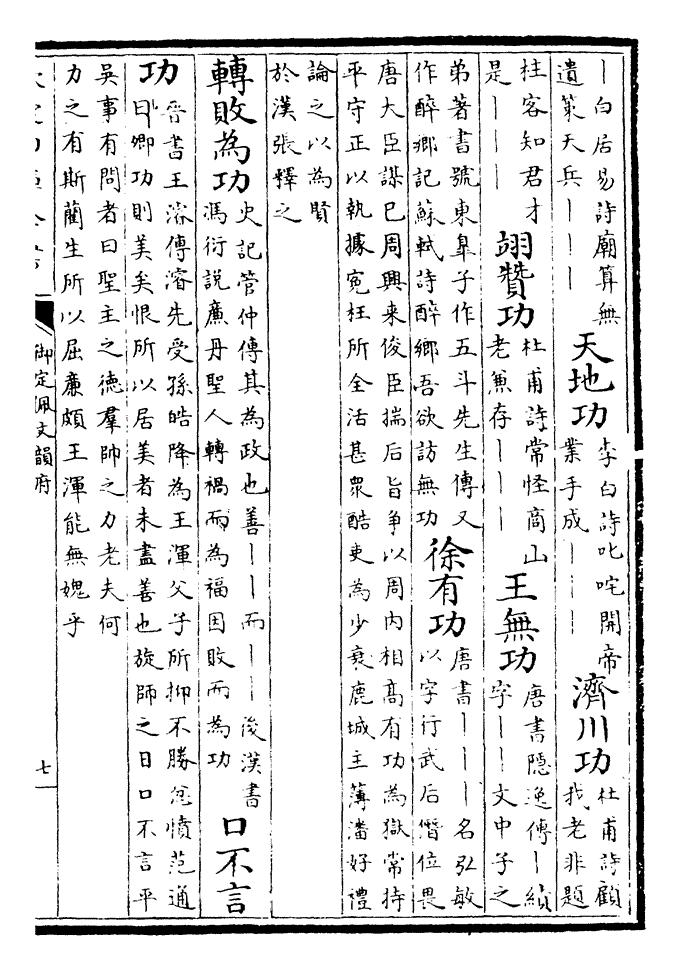 ｜白居易詩廟算無遺策天兵｜｜｜ 天地功 李白詩叱咤開帝業手成｜｜｜ 濟川功 杜甫詩顧我老非題
柱客知君才是｜｜｜ 翊贊功 杜甫詩常怪商山老兼存｜｜｜ 王無功 唐書隱逸傳｜績字｜｜文中子之
弟著書號東臯子作五斗先生傳又作醉鄉記蘇軾詩醉鄉吾欲訪無功 徐有功 唐書｜｜｜名弘敏以字行武后僭位畏
唐大臣謀已周興来俊臣揣后旨争以周内相高有功為獄常持
平守正以執據寃枉所全活甚衆酷吏為少衰鹿城主簿潘好禮
論之以為賢
於漢張釋之
轉敗為功 史記管仲傳其為政也善｜｜而｜｜後漢書馮衍說廉丹聖人轉禍而為福因敗而為功 口不言
功 晉書王濬傳濬先受孫皓降為王渾父子所抑不勝忿憤范通曰卿功則美矣恨所以居美者未盡善也旋師之日口不言平
吳事有問者曰聖主之德羣帥之力老夫何
力之有斯藺生所以屈廉頗王渾能無媿乎
御定佩文韻府
七